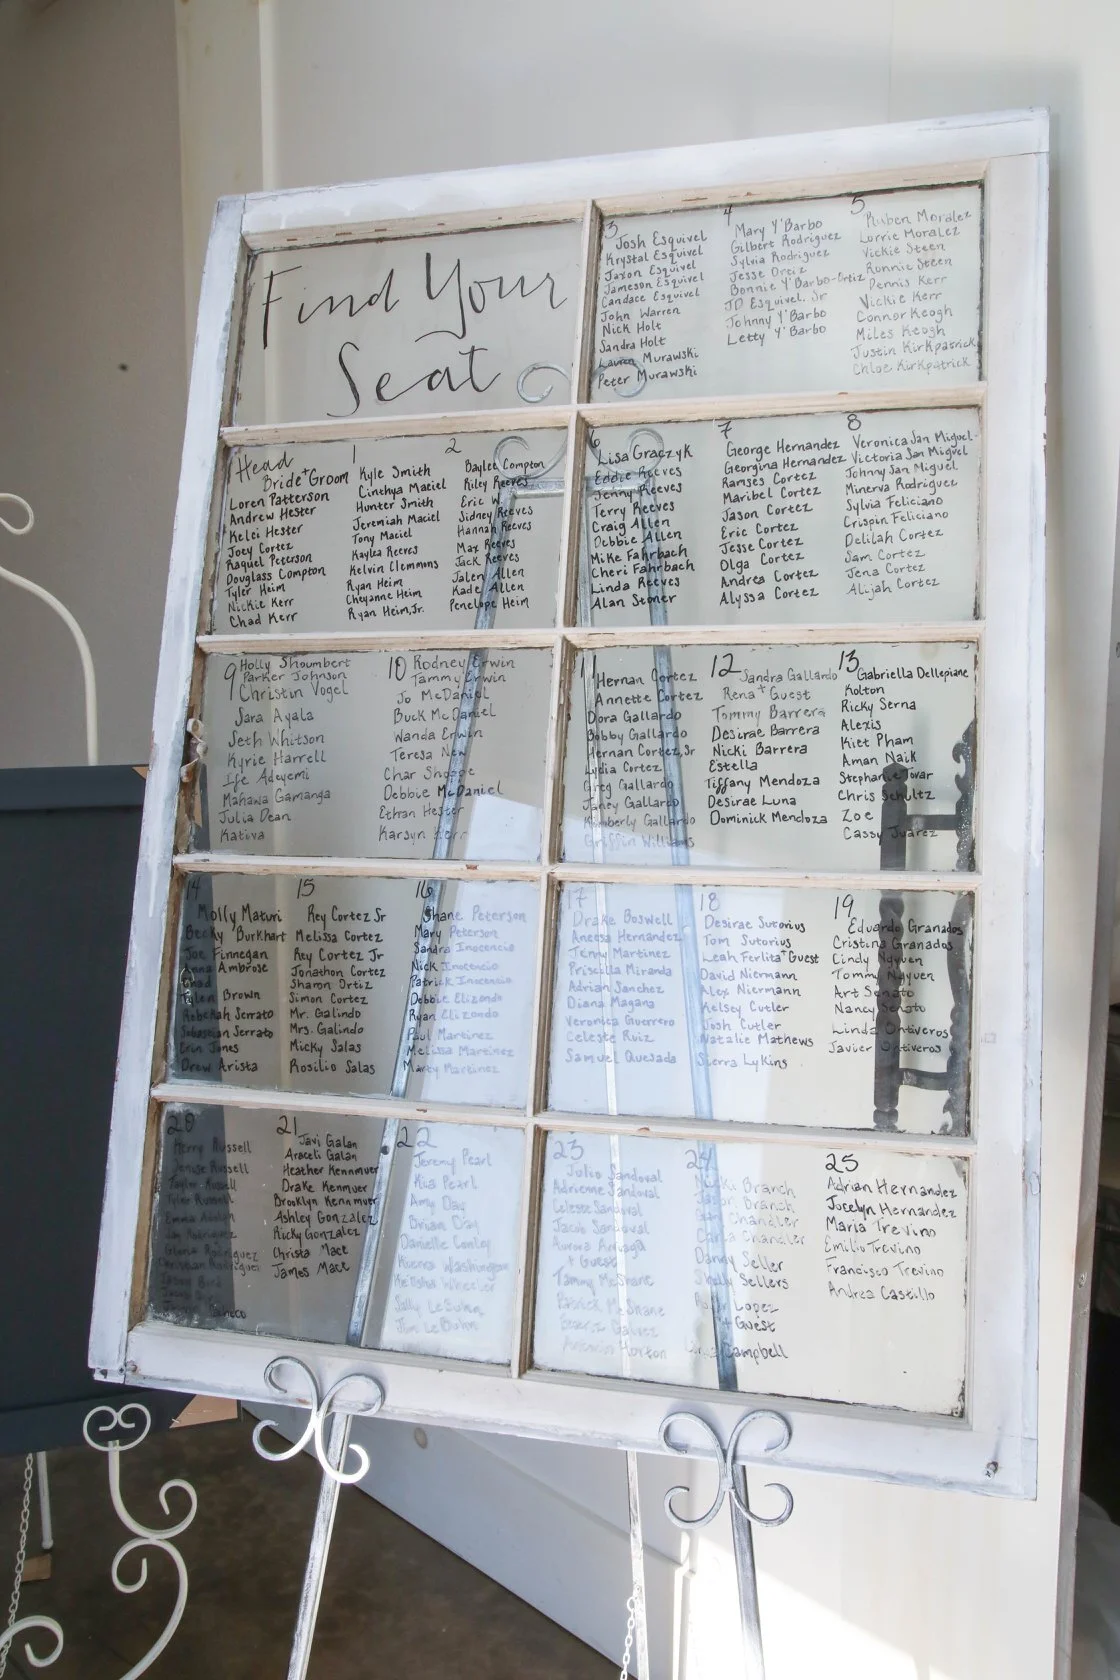 Find Your
Seat
3
Josh Esquivel
Krystal Esquivel
Jaxon Esquivel
Jameson Esquivel
Candace Esquivel
John Warren
Nick Holt
Sandra Holt
Lauren Murawski
Peter Murawski
4
Mary Y'Barbo
Gilbert Rodriguez
Sylvia Rodriguez
Jesse Ortiz
Bonnie Y'Barbo-Ortiz
JD Esquivel, Sr
Johnny Y'Barbo
Letty Y'Barbo
5
Ruben Moralez
Lorrie Moralez
Vickie Steen
Ronnie Steen
Dennis Kerr
Vickie Kerr
Connor Keogh
Miles Keogh
Justin Kirkpatrick
Chloe Kirkpatrick
Head
Bride + Groom
Loren Patterson
Andrew Hester
Kelci Hester
Joey Cortez
Raquel Peterson
Douglass Compton
Tyler Heim
Nickie Kerr
Chad Kerr
1
Kyle Smith
Cinthya Maciel
Hunter Smith
Jeremiah Maciel
Tony Maciel
Kaylea Reeves
Kelvin Clemmons
Ryan Heim
Cheyanne Heim
Ryan Heim, Jr.
2
Baylee Compton
Riley Reeves
Eric W.
Sidney Reeves
Hannah Reeves
Max Reeves
Jack Reeves
Jalen Allen
Kade Allen
Penelope Heim
6
Lisa Graczyk
Eddie Reeves
Jenny Reeves
Terry Reeves
Craig Allen
Debbie Allen
Mike Fahrbach
Cheri Fahrbach
Linda Reeves
Alan Stoner
7
George Hernandez
Georgina Hernandez
Ramses Cortez
Maribel Cortez
Jason Cortez
Eric Cortez
Jesse Cortez
Olga Cortez
Andrea Cortez
Alyssa Cortez
8
Veronica San Miguel
Victoria San Miguel
Johnny San Miguel
Minerva Rodriguez
Sylvia Feliciano
Crispin Feliciano
Delilah Cortez
Sam Cortez
Jena Cortez
Alijah Cortez
9
Holly Shoumbert
Parker Johnson
Christin Vogel
Sara Ayala
Seth Whitson
Kyrie Harrell
Ife Adeyemi
Mahawa Gamanga
Julia Dean
Kativa
10
Rodney Erwin
Tammy Erwin
Jo McDaniel
Buck McDaniel
Wanda Erwin
Teresa New
Char
Debbie McDaniel
Ethan Hester
Karsyn Kerr
11
Hernan Cortez
Annette Cortez
Dora Gallardo
Bobby Gallardo
Hernan Cortez, Sr
Lydia Cortez
Greg Gallardo
Janey Gallardo
Kimberly Gallardo
Griffin Williams
12
Sandra Gallardo
Rena + Guest
Tommy Barrera
Desirae Barrera
Nicki Barrera
Estella
Tiffany Mendoza
Desirae Luna
Dominick Mendoza
13
Gabriella Dellepiane
Kolton
Ricky Serna
Alexis
Kiet Pham
Aman Naik
Stephanie Tovar
Chris Schultz
Zoe
Cassy Juarez
14
Molly Maturi
Becky Burkhart
Joe Finnegan
Anna Ambrose
Chad
Tylen Brown
Rebekah Serrato
Sebastian Serrato
Erin Jones
Drew Arista
15
Rey Cortez Sr
Melissa Cortez
Rey Cortez Jr
Jonathon Cortez
Sharon Ortiz
Simon Cortez
Mr. Galindo
Mrs. Galindo
Micky Salas
Rosilio Salas
16
Shane Peterson
Mary Peterson
Sandra Inocencio
Nick Inocencio
Patrick Inocencio
Debbie Elizondo
Ryan Elizondo
Paul Martinez
Melissa Martinez
Marty Martinez
17
Drake Boswell
Aneesa Hernandez
Jenny Martinez
Priscilla Miranda
Adrian Sanchez
Diana Magana
Veronica Guerrero
Celeste Ruiz
Samuel Quesada
18
Desirae Sutorius
Tom Sutorius
Leah Ferlita + Guest
David Niermann
Alex Niermann
Kelsey Cutler
Josh Cutler
Natalie Mathews
Sierra Lykins
19
Eduardo Granados
Cristina Granados
Cindy Nguyen
Tommy Nguyen
Art Senato
Nancy Senato
Linda Ontiveros
Javier Ontiveros
20
Kerry Russell
Denise Russell
Taylor Russell
Tyler Russell
Gloria Rodriguez
Christian Rodriguez
Pacheco
21
Javi Galan
Araceli Galan
Heather Kennmuer
Drake Kenmuer
Brooklyn Kennmuer
Ashley Gonzalez
Ricky Gonzalez
Christa Mace
James Mace
22
Jeremy Pearl
Kia Pearl
Amy Day
Brian Day
Danielle Conley
Kierra Washington
Keisha Wheeler
Sally LeBuhn
Jim LeBuhn
23
Julio Sandoval
Adrienne Sandoval
Celeste Sandoval
Jacob Sandoval
Aurora Arriaga
+ Guest
Tammy McShane
Patrick McShane
Beatriz Galvez
Antonio Horton
24
Nicki Branch
Jason Branch
Stan Chandler
Carla Chandler
Danny Seller
Shelly Sellers
Lopez
+ Guest
Campbell
25
Adrian Hernandez
Jocelyn Hernandez
Maria Trevino
Emilio Trevino
Francisco Trevino
Andrea Castillo